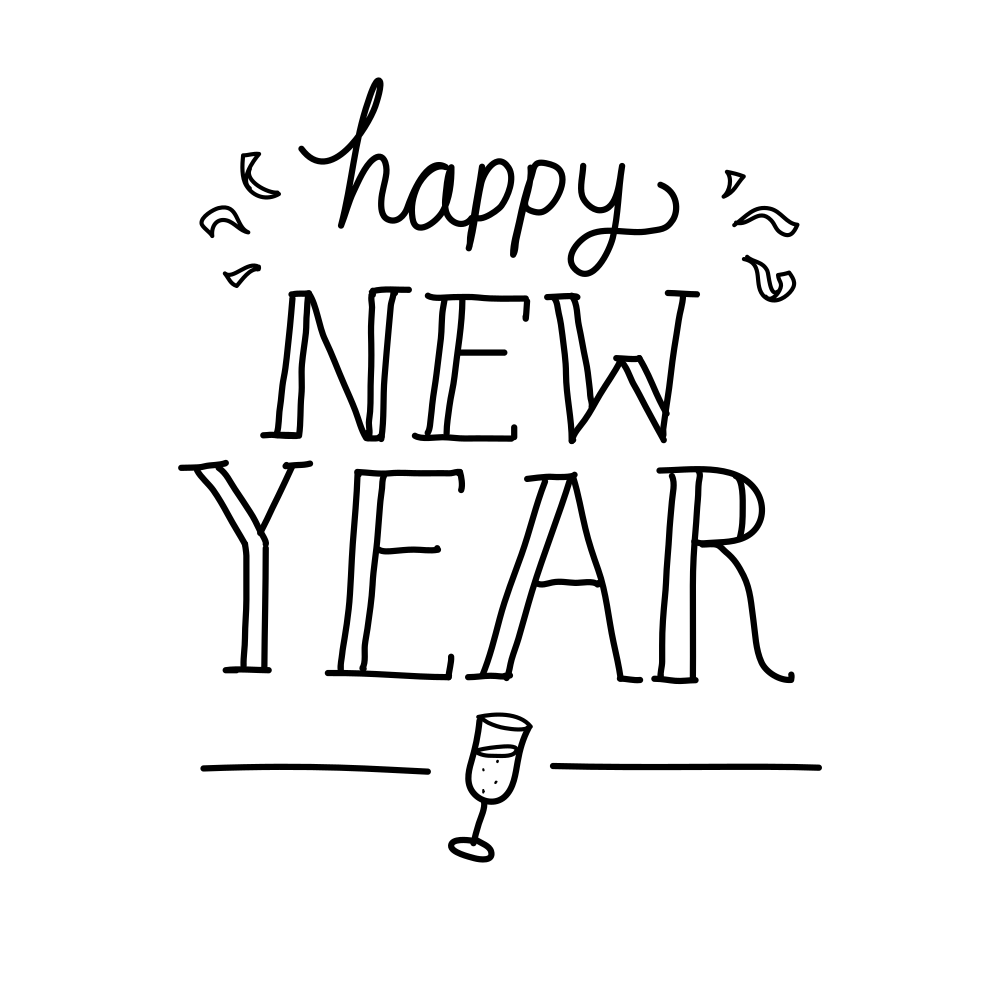 happy
NEW
YEAR